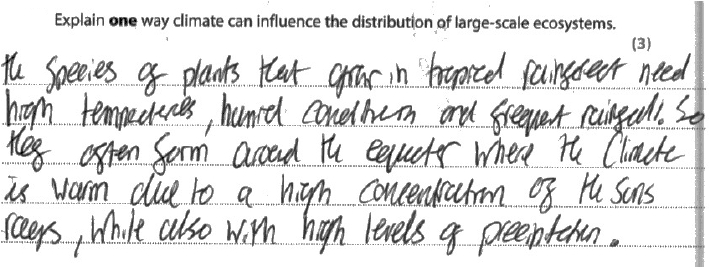 Explain one way climate can influence the distribution of large-scale ecosystems.
(3)
The species of plants that grow in tropical rainforest need
high temperatures, humid conditions and frequent rainfall. So
they often form around the equator where the climate
is warm due to a high concentration of the suns
rays, while also with high levels of precipitation.